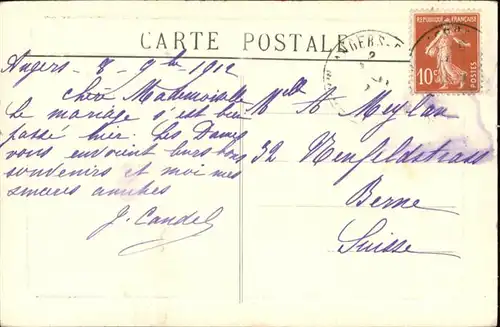 CARTE POSTALE
REPUBLIQUE FRANÇAISE
10c
POSTES
ANGERS
Angers 8 9bre 1912
Chère Mademoiselle
Le mariage s'est bien
passé hier. Les Dames
vous envoient leurs bons
souvenirs et moi mes
sincères amitiés
J. Candel
Mlle A Meylan
32 Neufeldstrasse
Berne
Suisse